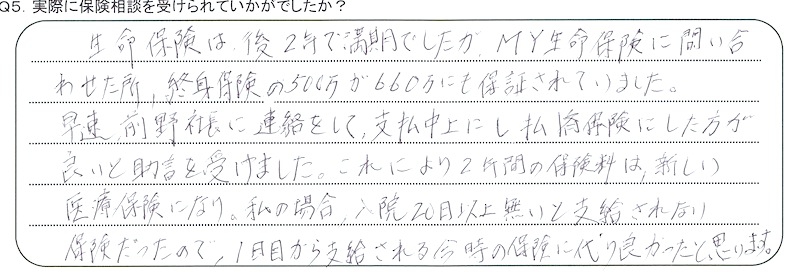 Q5. 実際に保険相談を受けられていかがでしたか？
生命保険は、後2年で満期でしたが、MY生命保険に問い合
わせた所、終身保険の500万が660万にも保証されていました。
早速、前野社長に連絡をして、支払中止にし払済保険にした方が
良いと助言を受けました。これにより2年間の保険料は、新しい
医療保険になり。私の場合、入院20日以上無いと支給されない
保険だったので、1日目から支給される今時の保険に代り良かったと思います。